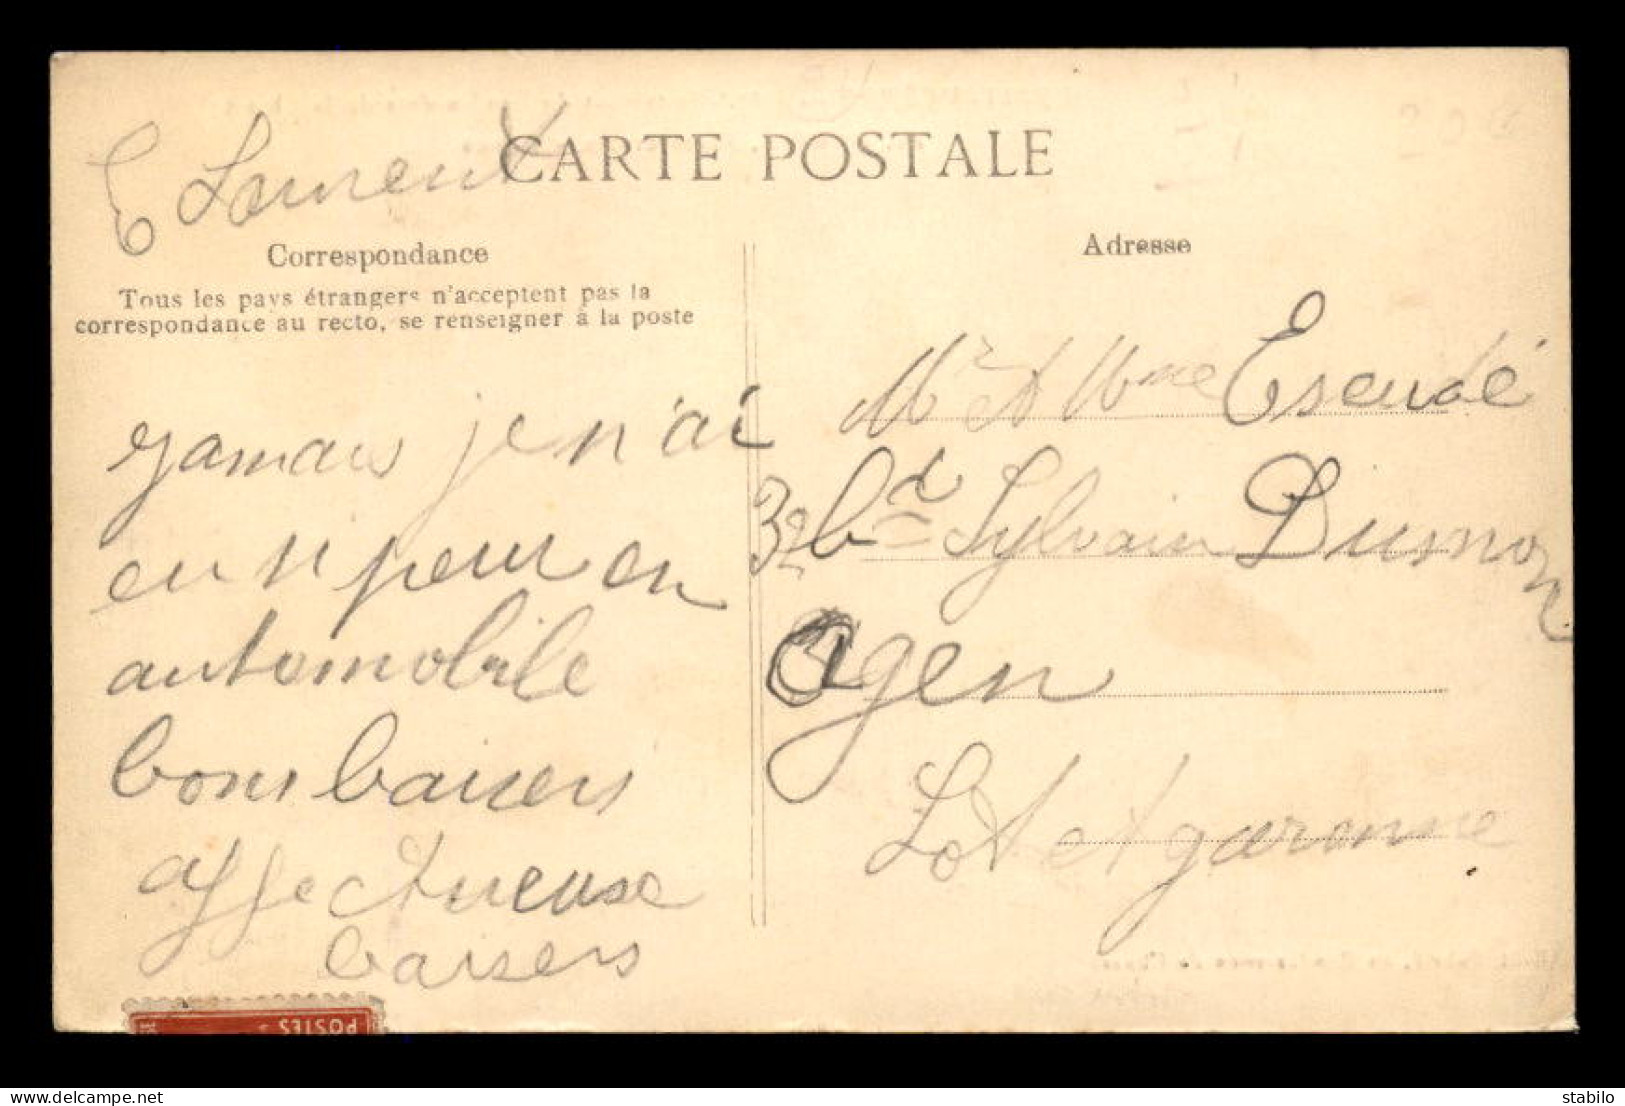 E Laurent
CARTE POSTALE
Correspondance
Tous les pays étrangers n'acceptent pas la
correspondance au recto, se renseigner à la poste
jamais je n'ai
eu si peur en
automobile
bons baisers
affectueuse
baisers
Adresse
Mr et Mme Escudé
32 bd Sylvain Dumon
Agen
Lot et garonne
POSTES
stabilo